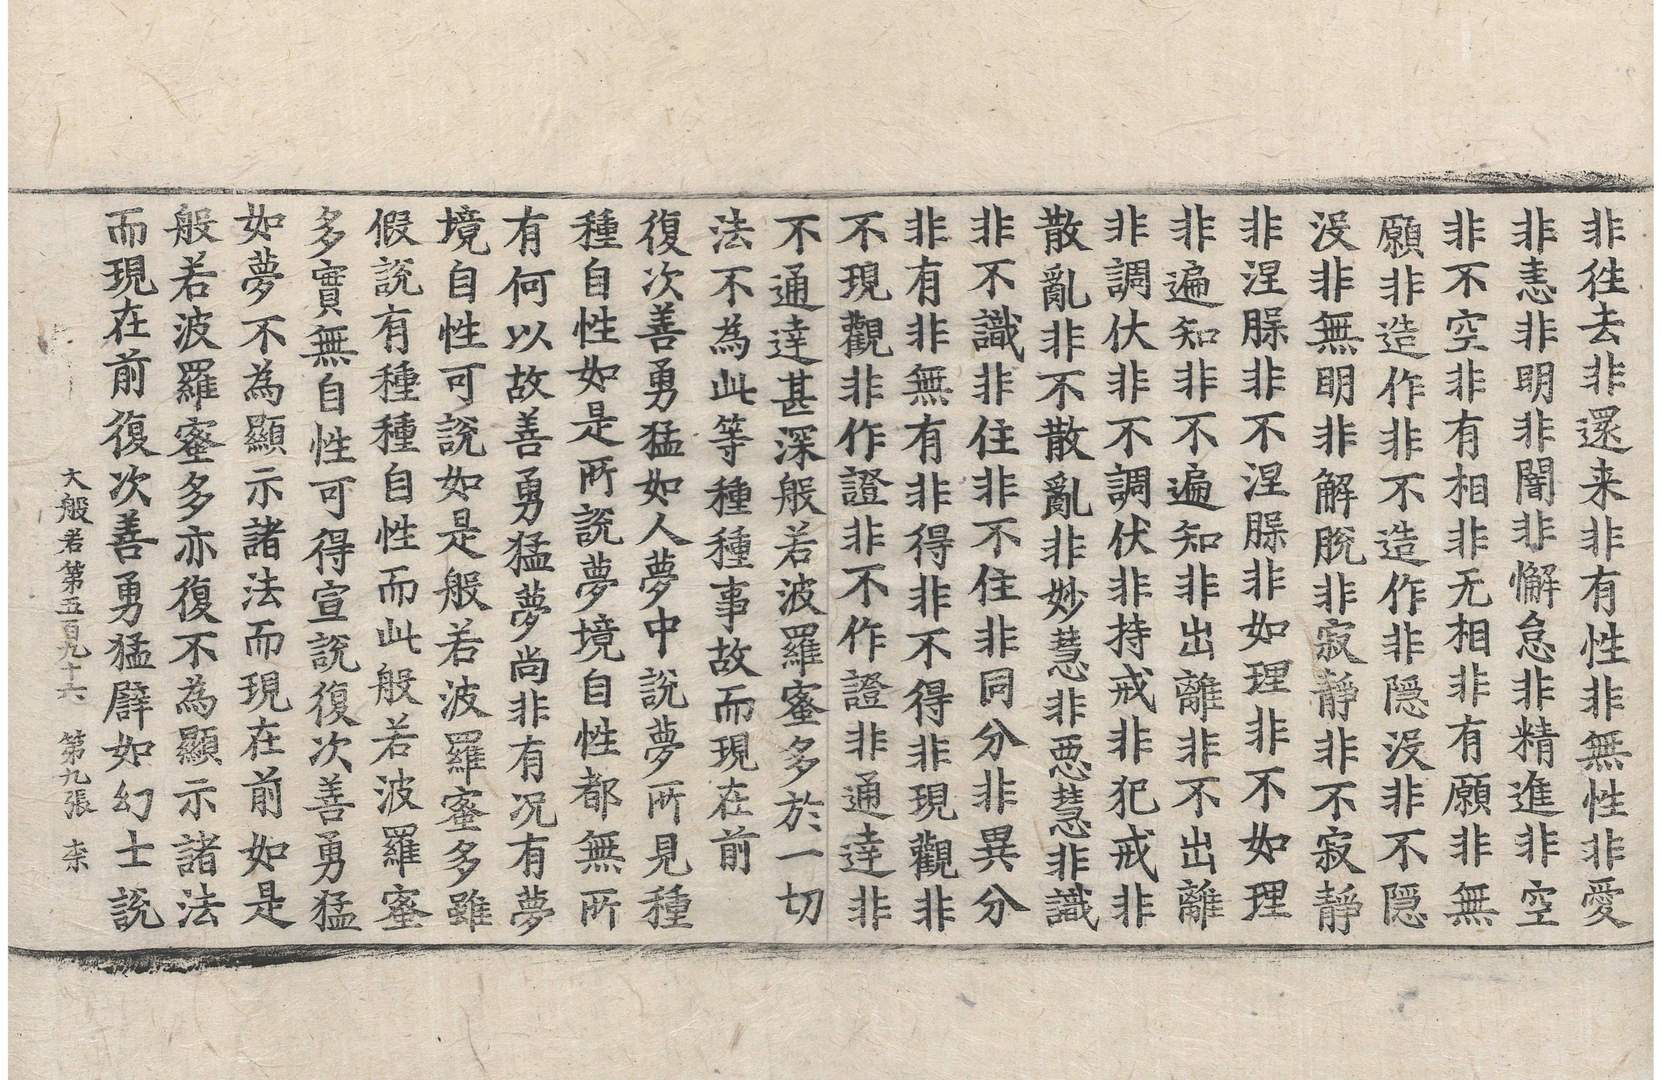 非徃去非還来非有性非無性非愛
非恚非明非闇非懈怠非精進非空
非不空非有相非无相非有願非無
願非造作非不造作非隠没非不隠
没非無明非解脫非寂靜非不寂靜
非涅槃非不涅槃非如理非不如理
非遍知非不遍知非出離非不出離
非調伏非不調伏非持戒非犯戒非
散亂非不散亂非妙慧非惡慧非識
非不識非住非不住非同分非異分
非有非無有非得非不得非現觀非
不現觀非作證非不作證非通達非
不通達甚深般若波羅蜜多於一切
法不為此等種種事故而現在前
復次善勇猛如人夢中說夢所見種
種自性如是所說夢境自性都無所
有何以故善勇猛夢尚非有况有夢
境自性可說如是般若波羅蜜多雖
假說有種種自性而此般若波羅蜜
多實無自性可得宣說復次善勇猛
如夢不為顯示諸法而現在前如是
般若波羅蜜多亦復不為顯示諸法
而現在前復次善勇猛譬如幻士說
大般若第五百九十六 第九張 柰